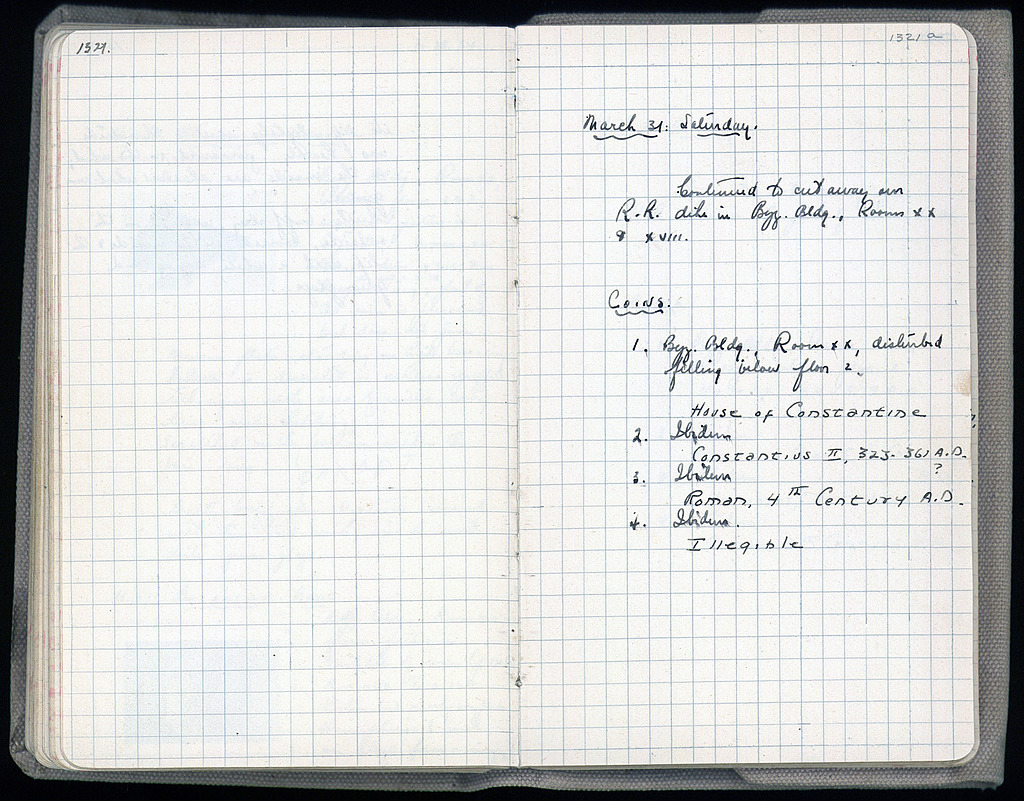 1321.
1321 a
March 31: Saturday.
Continued to cut away our
R.R. dike in Byz. Bldg., Rooms XX
& XVIII.
Coins.
1. Byz. Bldg., Room XX, disturbed
filling below floor 2.
House of Constantine
2. Ibidem
Constantius II, 323-361 A.D.
3. Ibidem ?
Roman, 4th Century A.D.
4. Ibidem.
Illegible